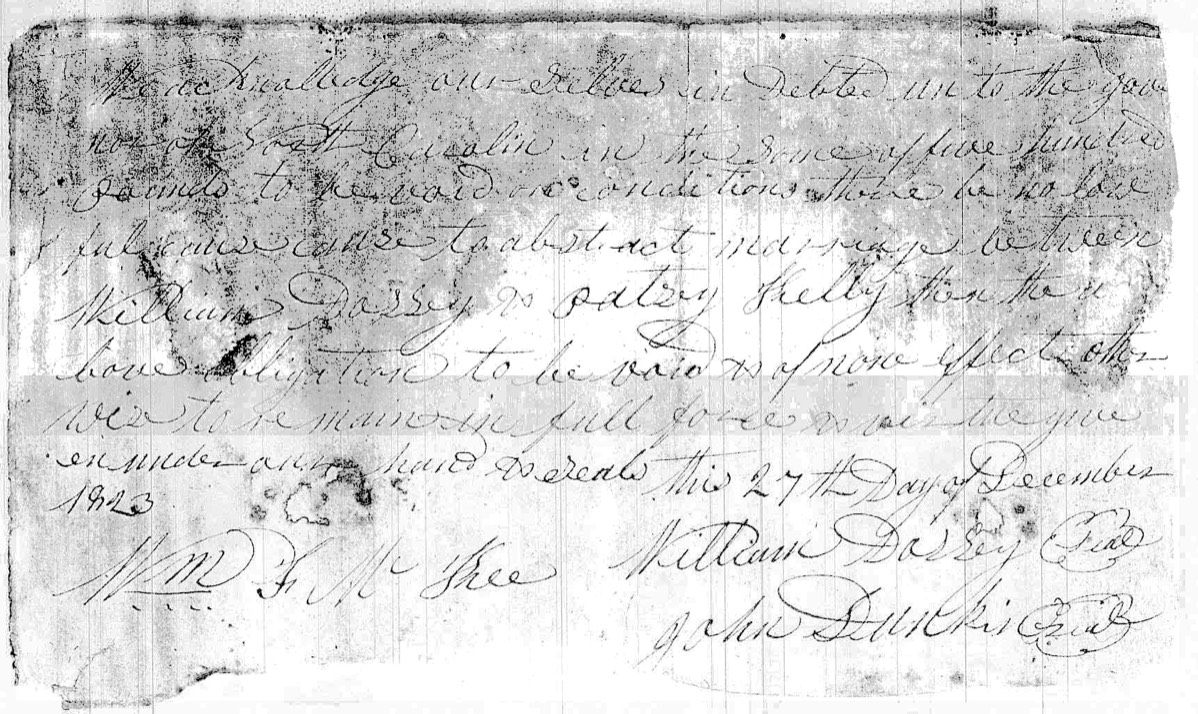 We acknolledge our selves in debted un to the gov
nor of North Carolin in the some of five hundred
pounds to be void on conditions there be no law
ful cause cause to abstract marriage between
William Dossey & Patsey Kelly then the a
bove obligation to be void & of none effect other
wise to remain in full force & virtue give
en under our hand & seals this 27th Day of December
1823
William Dossey Seal
Wm F McKee
John Dunkin Seal